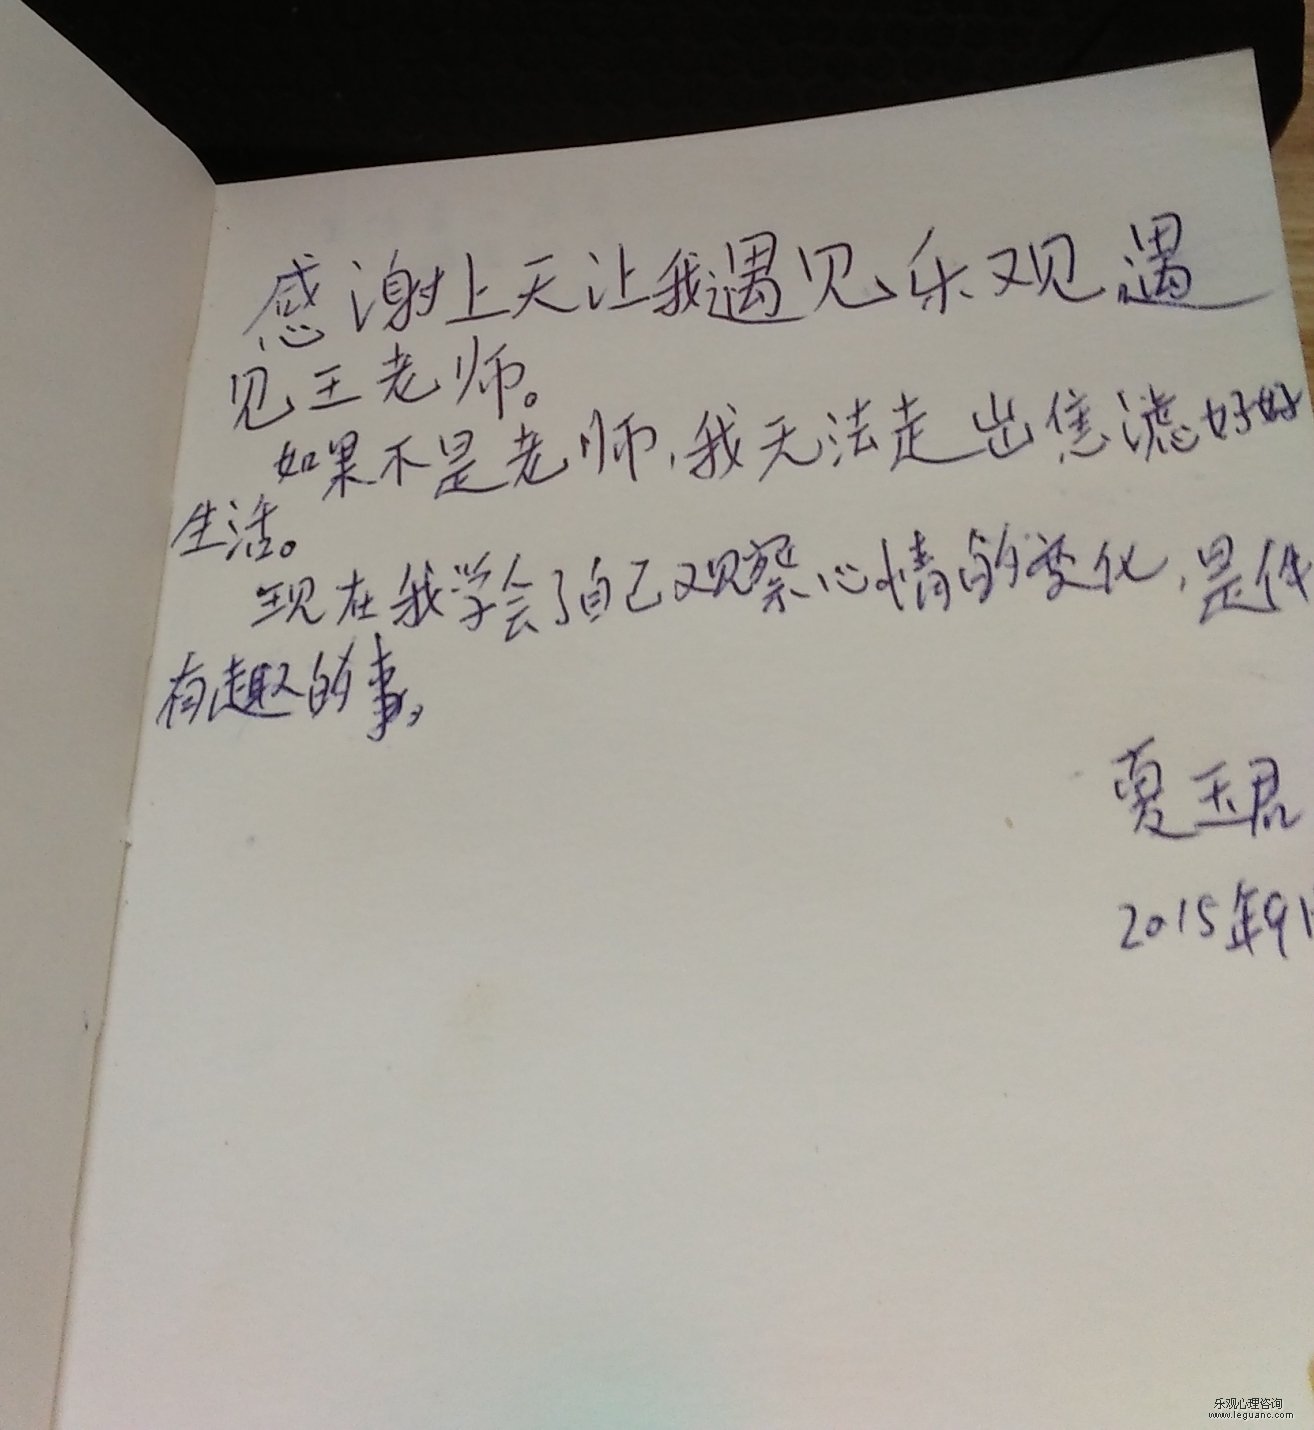 感谢上天让我遇见乐观遇
见王老师。
如果不是老师,我无法走出焦滤好好
生活。
现在我学会了自己观察心情的变化,是件
有趣的事。
夏玉君
2015年9
乐观心理咨询
www.leguanc.com